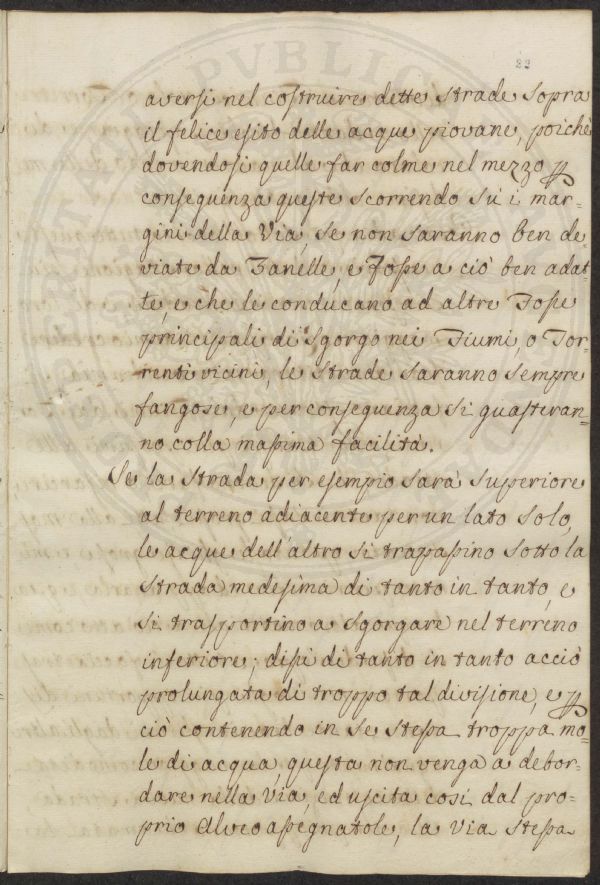 22
aversi nel costruire dette Strade sopra
il felice esito delle acque piovane, poichè
dovendosi quelle far colme nel mezzo p
conseguenza queste scorrendo sù i mar-
gini della Via, se non saranno ben de
viate da Zanelle, e Fosse a ciò ben adat
te, e che le conducano ad altre Fosse
principali di Sgorgo nei Fiumi, o Tor-
renti vicini, le strade saranno sempre
fangose, e per conseguenza si guasteran-
no colla massima facilità.
Se la Strada per esempio sarà superiore
al terreno adiacente per un lato solo,
le acque dell'altro si trapassino sotto la
Strada medesima di tanto in tanto, e
si trasportino a sgorgare nel terreno
inferiore; dissi di tanto in tanto acciò
prolungata di troppo tal divisione, e p
ciò contenendo in se stessa troppa mo-
le di acqua, questa non venga a debor-
dare nella Via, ed uscita così dal pro-
prio Alveo assegnatole, la Via stessa